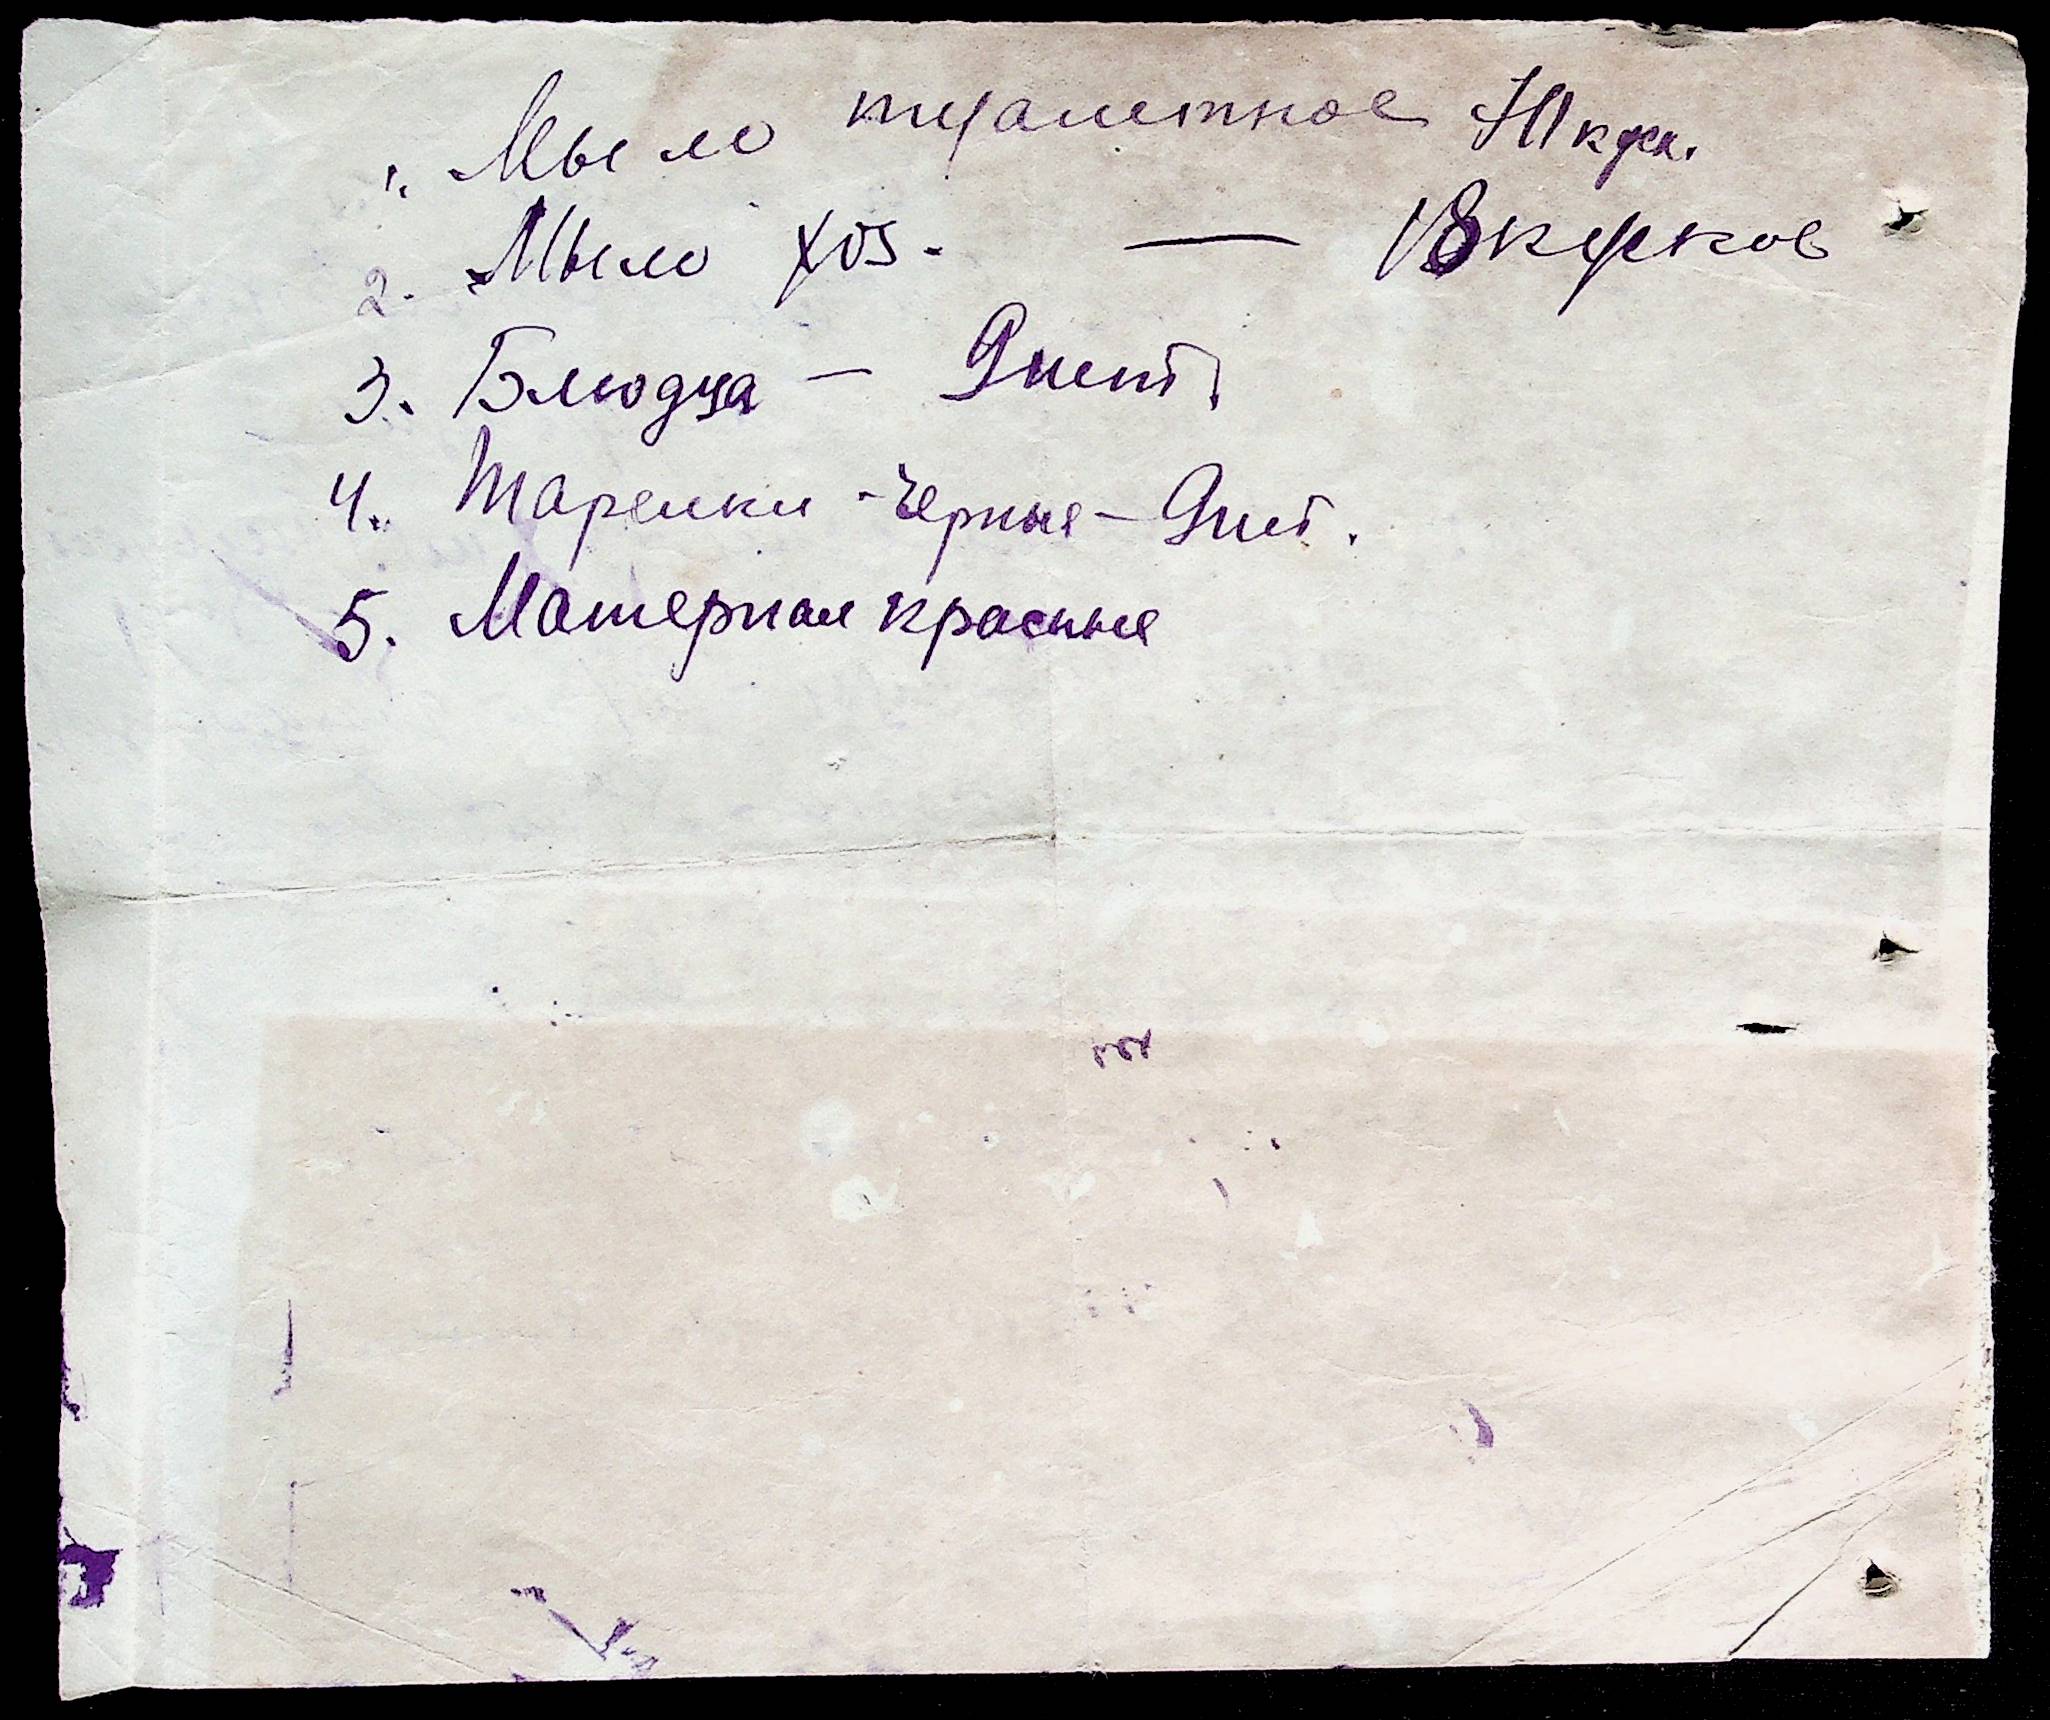 1. Мыло туалетное 10 кус.
2. Мыло хоз. — 18 кусков
3. Блюдца — 9 шт.
4. Тарелки - черные — 9 шт.
5. Материал красные